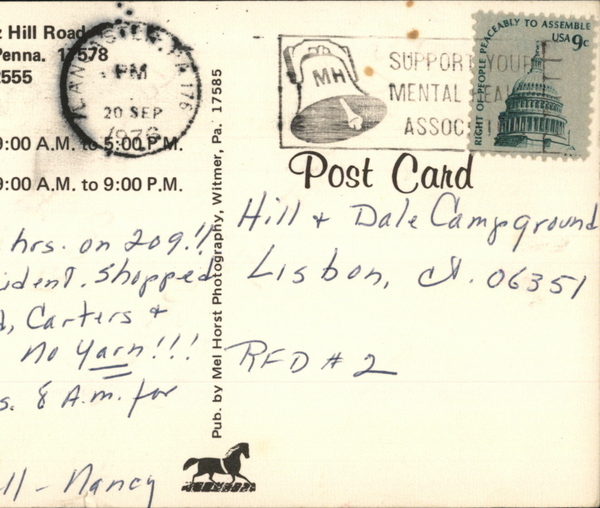 z Hill Road
Penna. 17578
2555
LANCASTER, PA 176
PM
20 SEP
1976
9:00 A.M. to 5:00 P.M.
9:00 A.M. to 9:00 P.M.
hrs. on 209!!
ident. Shopped
d, Carters &
No Yarn!!!
s. 8 A.M. for
ll - Nancy
Pub. by Mel Horst Photography, Witmer, Pa. 17585
MH
SUPPORT YOUR
MENTAL HEALTH
ASSOC
RIGHT OF PEOPLE PEACEABLY TO ASSEMBLE
USA 9c
Post Card
Hill & Dale Campground
Lisbon, Ct. 06351
RFD # 2